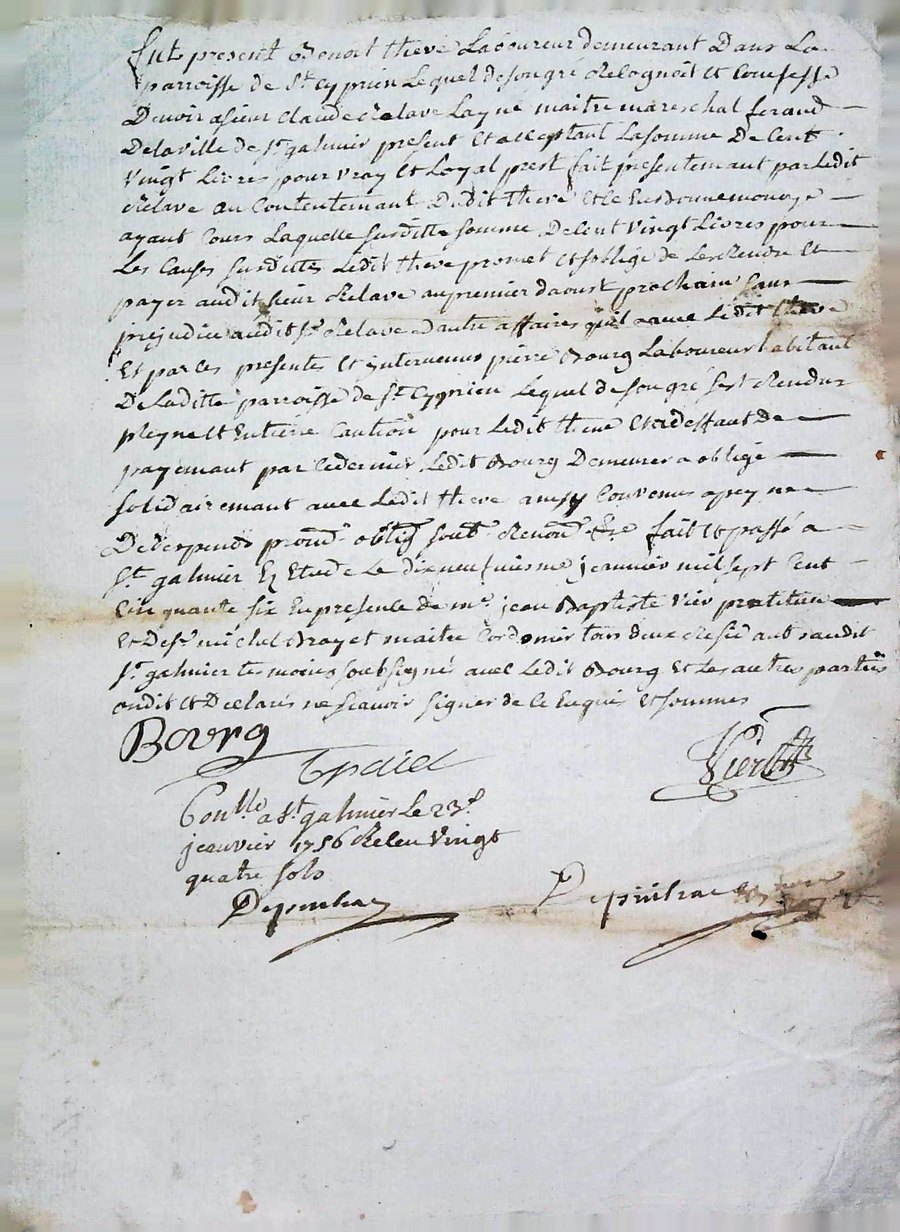 fut present Benoit theve Laboureur demeurant Dans La
parroisse de St Cyprien Lequel de son gré Relognoit et Confesse
Devoir a sieur Claude Relave Layné maitre mareschal ferand
De la ville de St galmier present et acceptant La somme De Cent
Vingt Livres pour vray et Loyal prest fait presentemant par Ledit
Relave au Contentemant Dudit theve et le en bonne monoye
ayant Cours Laquelle surditte somme De Cent Vingt Livres pour
Les Causes surdittes Ledit theve promet et soblige de Les Rendre et
payer audit sieur Relave au premier daoust prochain sans
prejudice audit sr Relave dautre affaires quil a avec Ledit theve
Et par Ces presentes Est intervenus pierre Bourg Laboureur habitant
De Laditte parroisse de St Cyprien Lequel de son gré sest Rendus
pleyne et Entiere Caution pour Ledit theve et a deffaut de
payemant par Ce dernier Ledit Bourg Demeurera obligé
solidairemant avec Ledit theve ainsy Convenus a peyne
De depends prom. oblig. soub. Renon. fait et passé a
St galmier En Etude Le dix neufviesme jeanvier mil sept Cent
Cinquante six En presence de me jean Baptiste Vier pratitien
et De sr michel Brayet maitre Cordonier tous deux Residants audit
St galmier temoins soubsigné avec Ledit Bourg et Les autres parties
ondit et Declarés ne sçavoir signer de Ce Enquis et sommes
Bourg
Vier
Conllé a St galmier Le 23e
jeanvier 1756 Releu Vingt
quatre sols
Depuihac
Depuihac